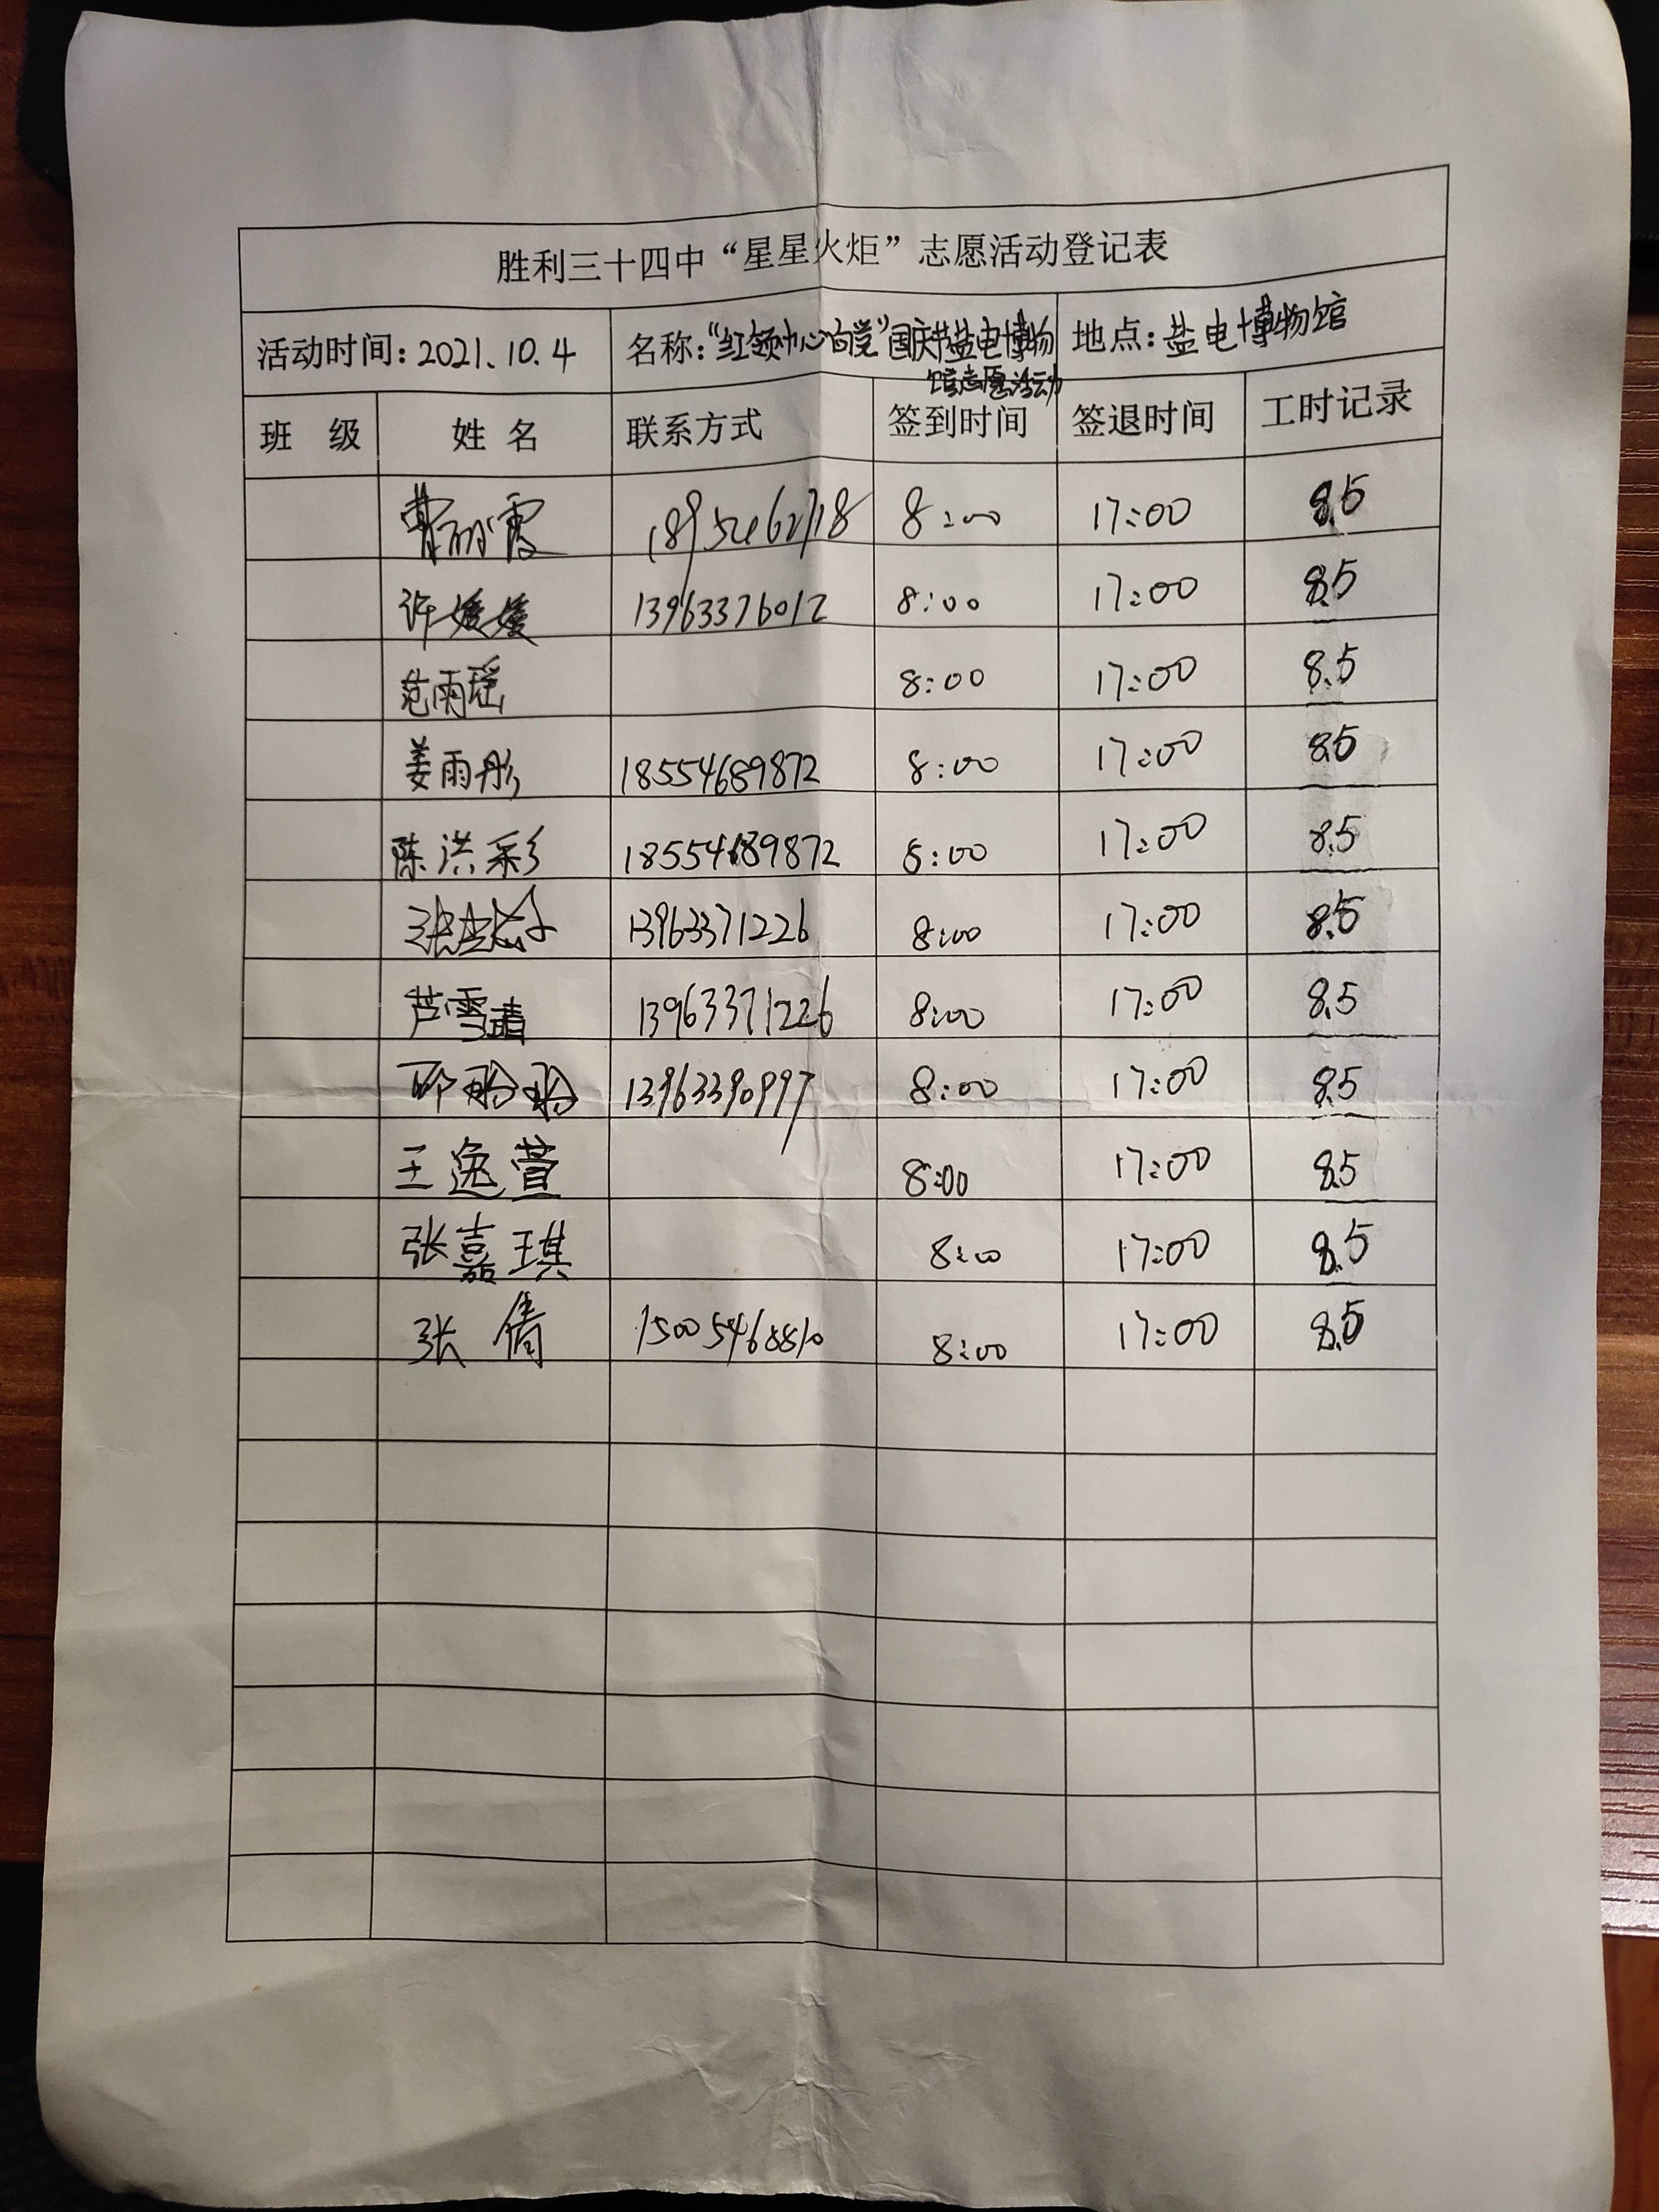 胜利三十四中“星星火炬”志愿活动登记表
活动时间：2021.10.4 名称：“红领巾心向党”国庆节盐电博物 地点：盐电博物馆
馆志愿活动
班 级 姓 名 联系方式 签到时间 签退时间 工时记录
曹丽霞 8:00 17:00 8.5
许媛媛 13963376012 8:00 17:00 8.5
范雨瑶 8:00 17:00 8.5
姜雨彤 18554689872 8:00 17:00 8.5
陈洪彩 18554689872 8:00 17:00 8.5
13963371226 8:00 17:00 8.5
芦雪晴 13963371226 8:00 17:00 8.5
邱盼盼 13963390997 8:00 17:00 8.5
王逸萱 8:00 17:00 8.5
张嘉琪 8:00 17:00 8.5
张倩 15005468810 8:00 17:00 8.5